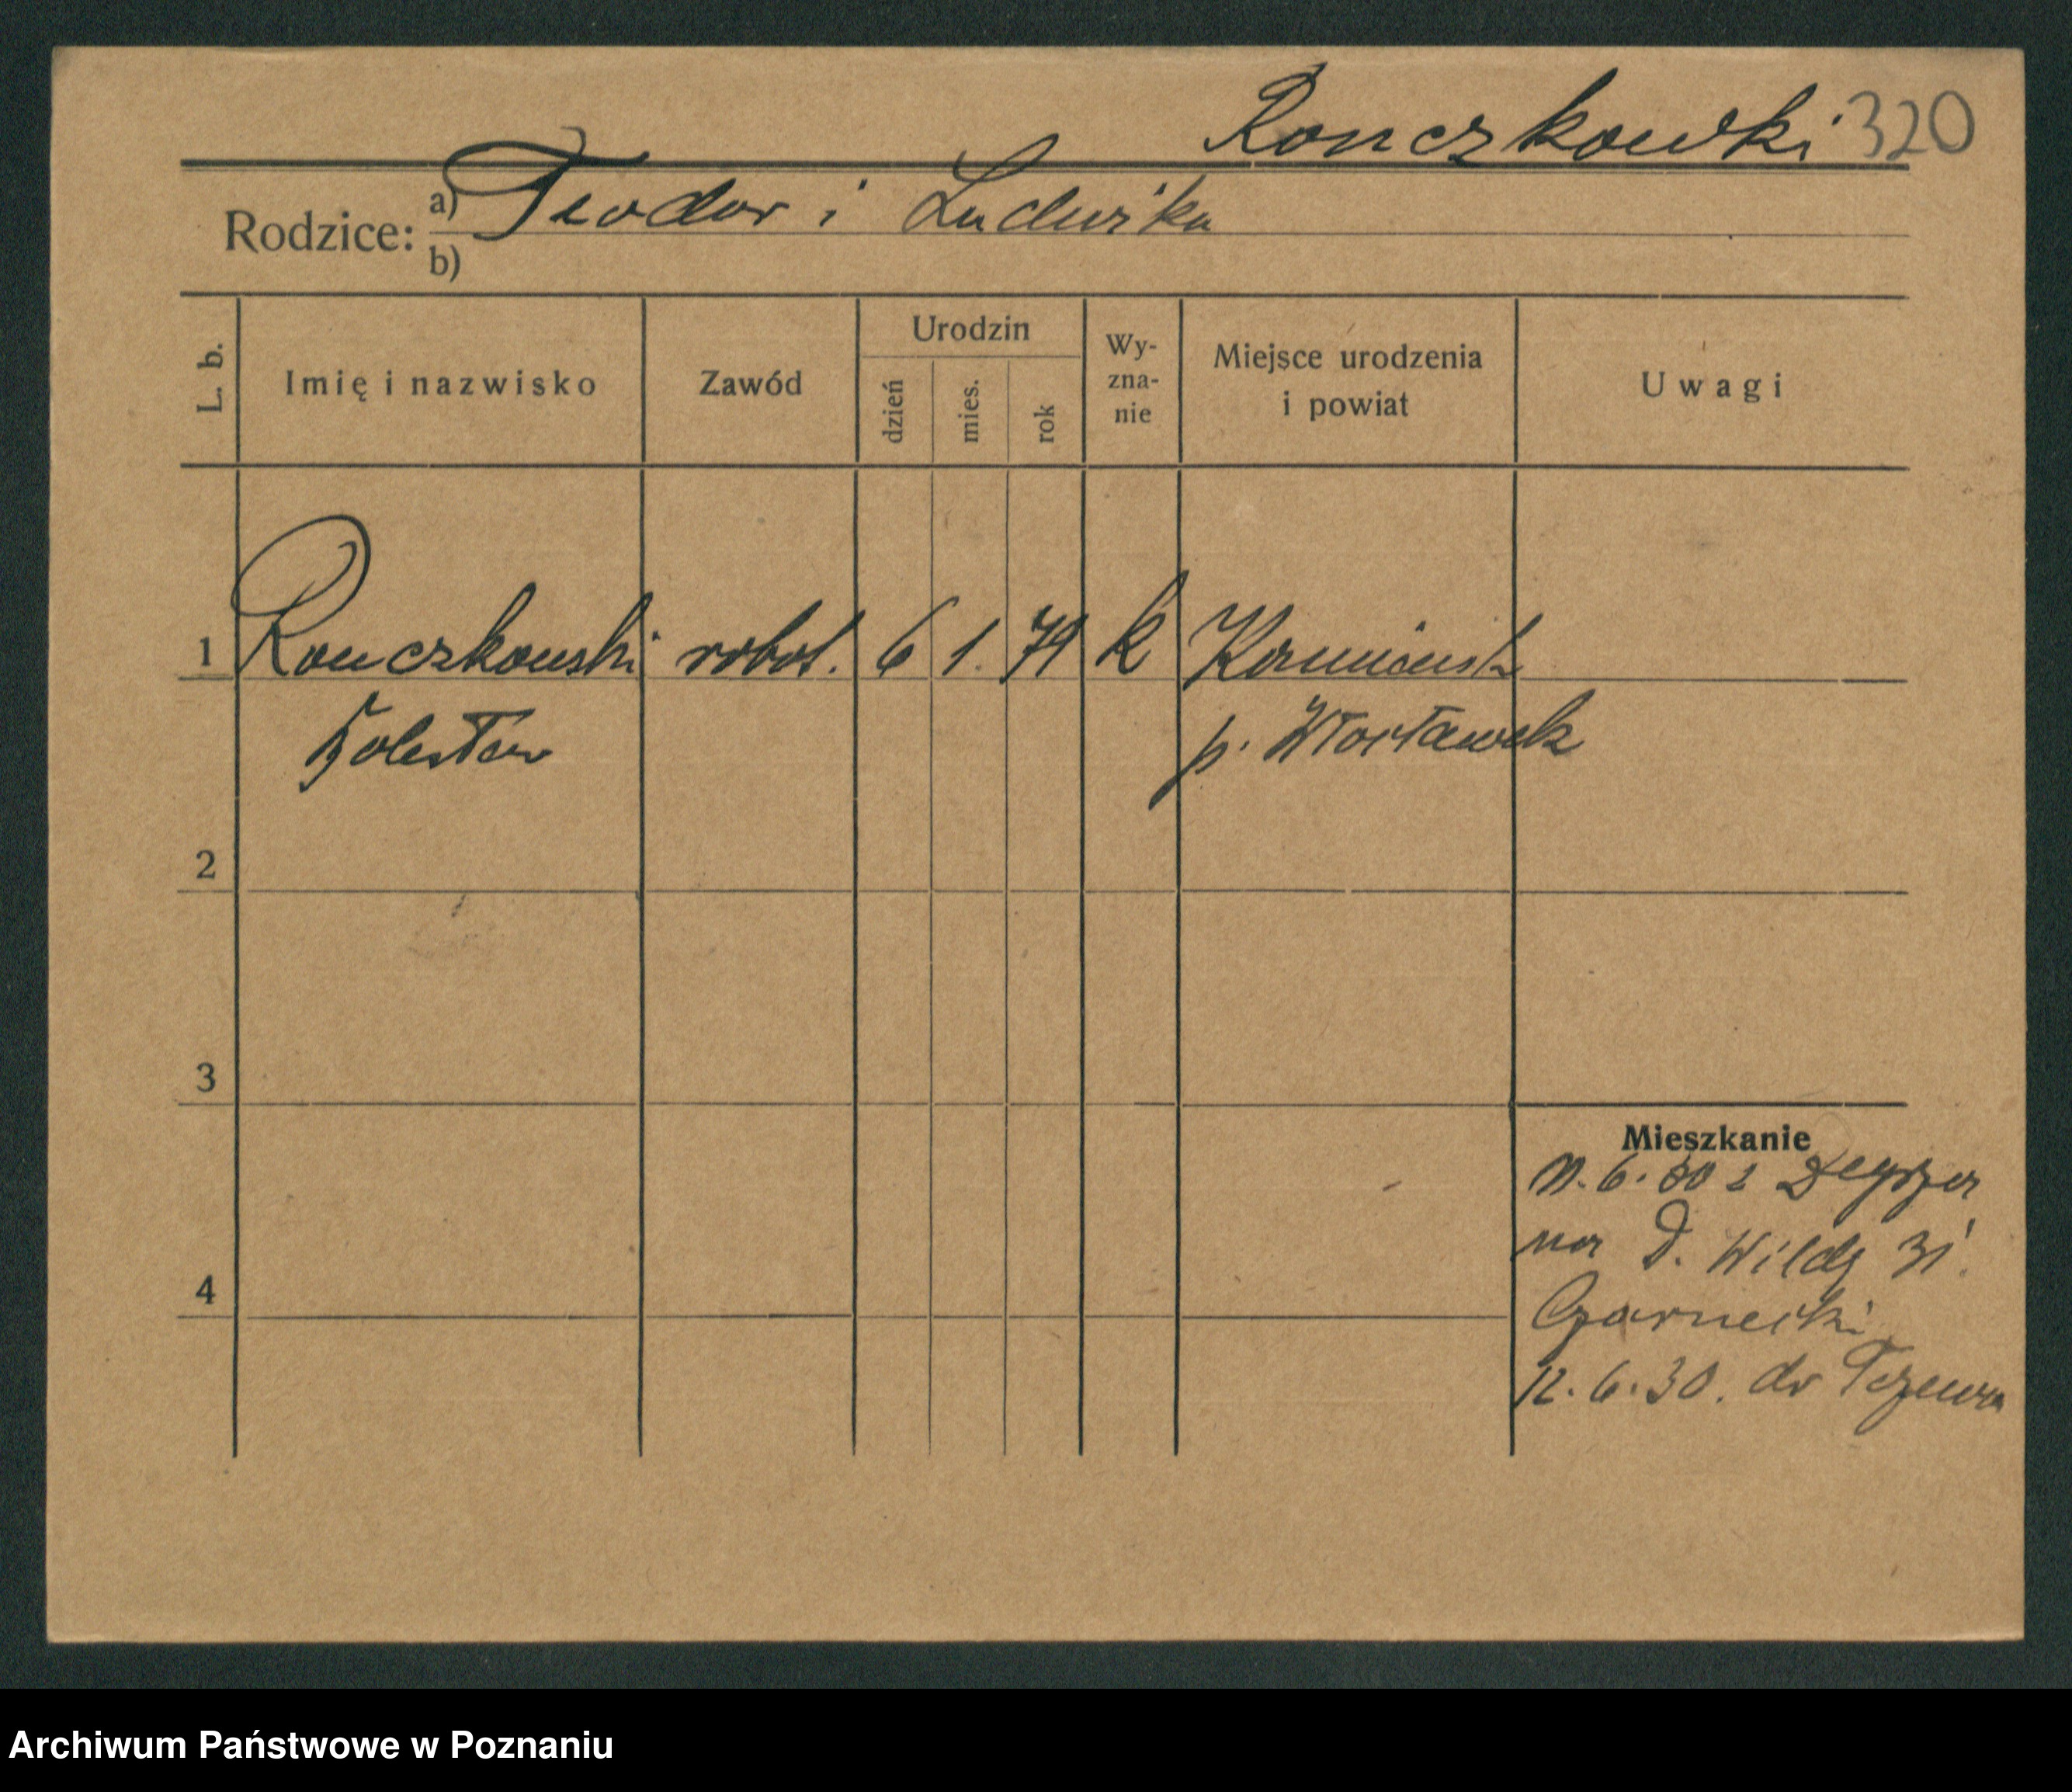 Ronczkowski 320
Rodzice: a) Teodor i Ludwika
b)
L. b.
Imię i nazwisko
Zawód
Urodzin
dzień
mies.
rok
Wy-
zna-
nie
Miejsce urodzenia
i powiat
Uwagi
1 Ronczkowski robot. 6 1. 79 k
Bolesław p. Włocławek
2
3
4
Mieszkanie
6. 30 z
na D. Wilda 31.
Czarnecki
12. 6. 30. do Tczewa
Archiwum Państwowe w Poznaniu